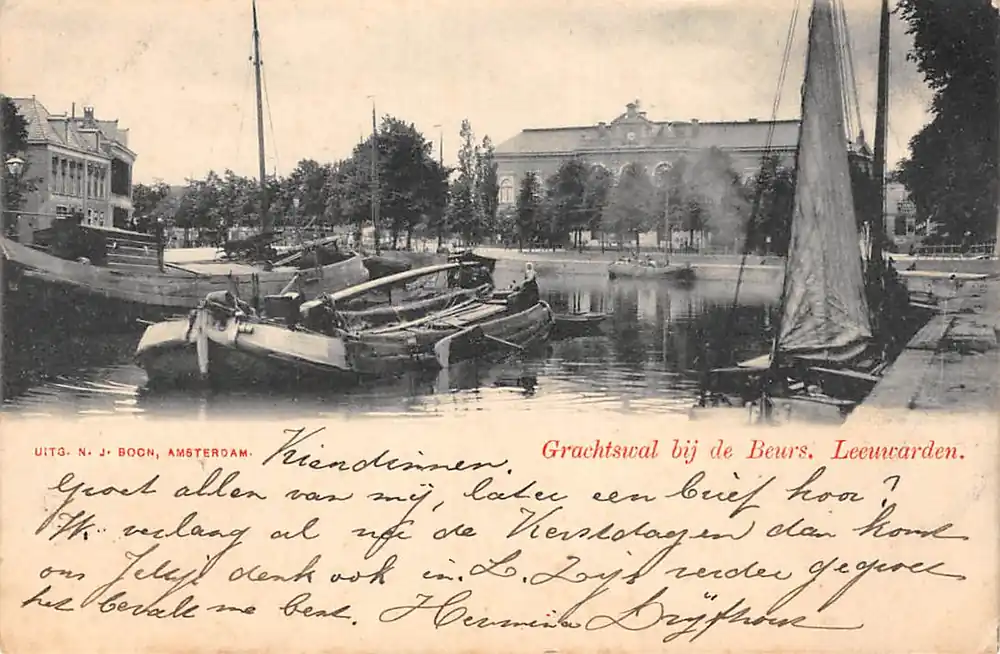 UITG. N. J. BOON, AMSTERDAM.
Grachtswal bij de Beurs. Leeuwarden.
Vriendinnen.
Groet allen van mij, later een brief hoor?
Ik verlang al naar de Kerstdagen dan komt
ons Jeltje denk ook in L. Zijt verder gegroet
het bevalt me best. Hermina